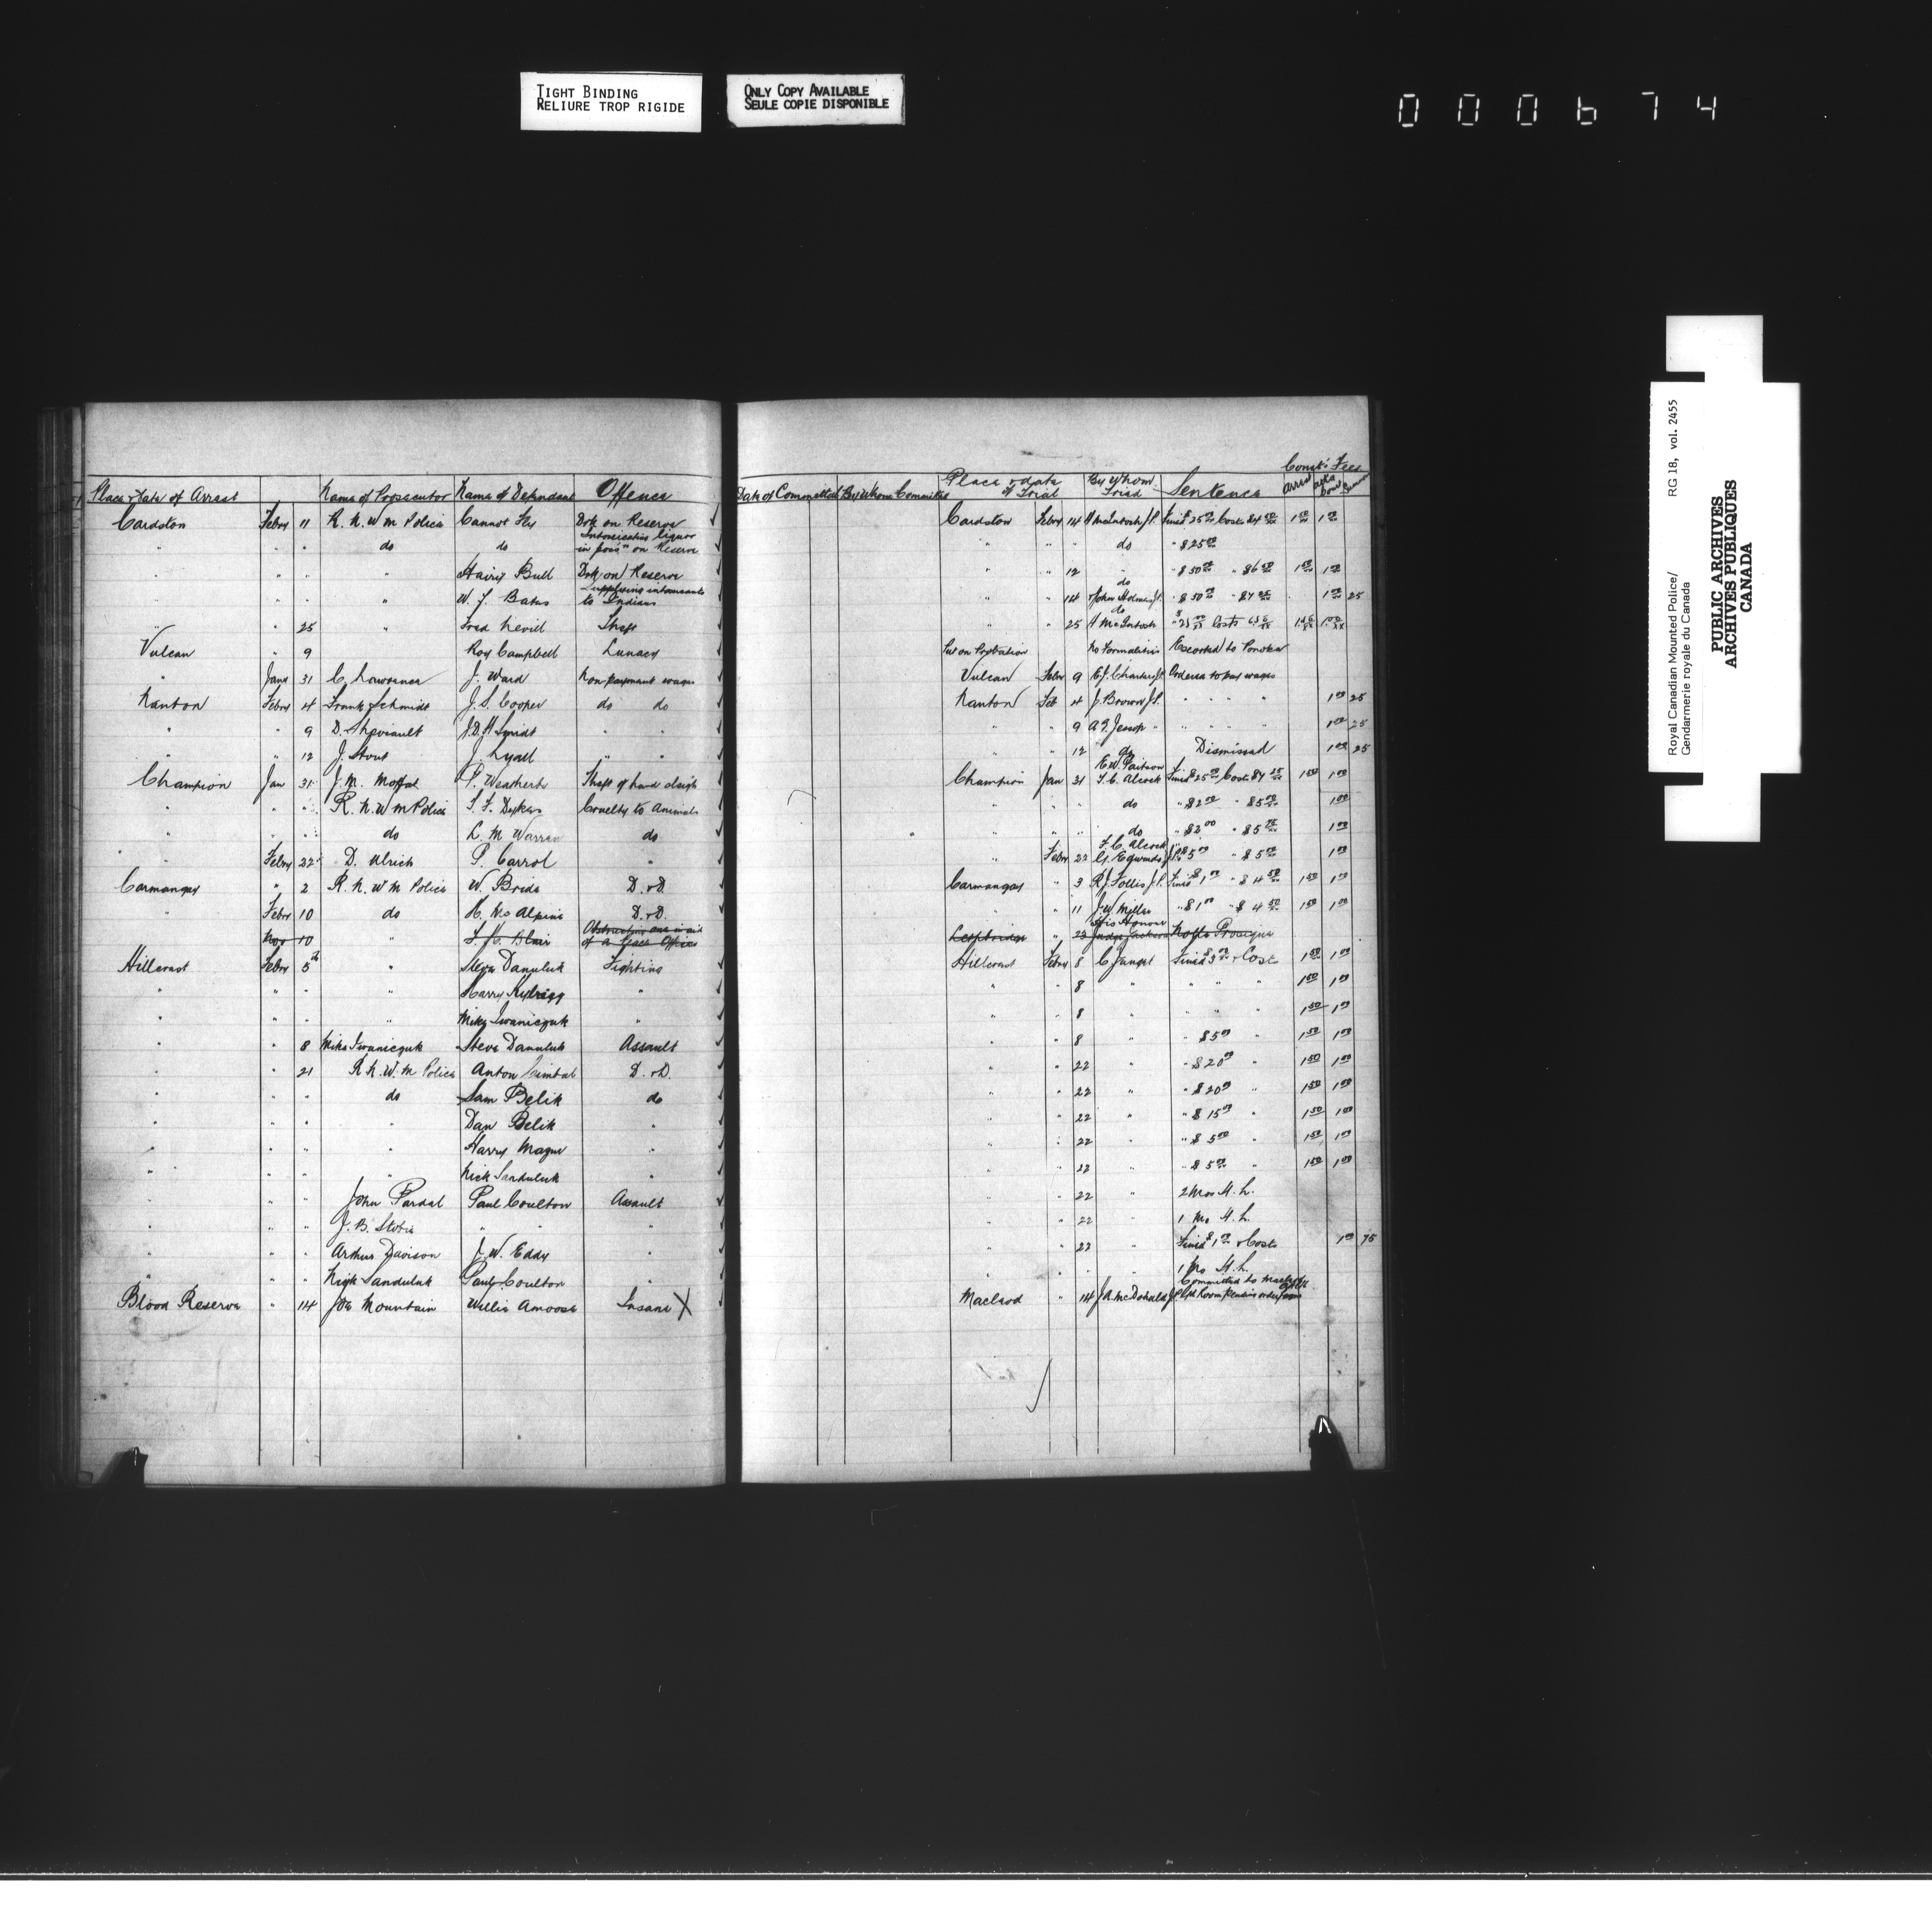 TIGHT BINDING
RELIURE TROP RIGIDE
ONLY COPY AVAILABLE
SEULE COPIE DISPONIBLE
000674
Royal Canadian Mounted Police/ RG 18, vol. 2455
Gendarmerie royale du Canada
PUBLIC ARCHIVES
ARCHIVES PUBLIQUES
CANADA
Const's Fees
Place & date of Arrest Name of Prosecutor Name of Defendant Offence Date of Committal By Whom Committed Place & date of Trial By Whom Tried Sentence
Cardston Febry 11 R. N. W. M Police Cannot Fly Drk on Reserve Cardston Febry 14 McIntosh J.P. Fined $25 00 Costs $4 50 1 50 1 00
" " " do do Intoxicating liquor in poss'n on Reserve " " " do " $25 00
" " " " Hairy Bull Drk on Reserve " " 12 " " $50 00 " $6 50 1 50 1 00
" " " " W. J. Bates Supplying intoxicants to Indians " " 14 do & John Holmes J.P. " $50 00 " 1 00 25
" " 25 " Fred Nevill Theft " " 25 do McIntosh " 25 00 Costs
Vulcan " 9 Roy Campbell Lunacy Put on Probation No Formalities Escorted to Ponoka
" Jany 31 C. Lawrence J. Ward Non payment wages Vulcan Febry 9 Ordered to pay wages
Nanton Febry 4 Frank Schmidt J. S. Cooper do do Nanton Feb 4 J. Brown J.P. " " " 1 00 25
" " 9 D. J. D. H. Smidt " " " " 9 A. G. Jessop " " " " " 1 00 25
" " 12 J. Stout J. Lyall " " " " 12 do Dismissed 1 00 25
Champion Jan 31 J. M. Moffat P. Weatherbe Theft of hand sleigh Champion Jan 31 F. C. Alcock Fined $25 00 Costs $4 25 1 50 1 00
" " " R. N. W M Police S. F. Dykes Cruelty to Animals " " " do " $2 00 " $5 00 1 00
" " " do L. M Warren do " " " do " $2 00 " $5 1 00
" Febry 22 D. Ulrich P. Carrol " " Febry 22 F. C. Alcock G. Edwards $5 00 " $5 00 1 00
Carmangay " 2 R. N. W M Police W. Bride D. & D. Carmangay " 3 R. J. Follis J.P. Fined $1 00 " $4 50 1 50 1 00
" Febry 10 do H. McAlpine D. & D. " " 11 J. W. Miller " $1 00 " $4 50 1 50 1 00
Nov 10 " Blair Obstructing one in aid of a Peace Officer Lethbridge " 23 His Honour Judge Jackson Nolle Prosequi
Hillcrest Febry 5th " Steve Danuluk Fighting Hillcrest Febry 8 C Fined $3 00 & Costs 1 50 1 00
" " " " Harry " " " 8 " " " " 1 50 1 00
" " " " Mike Iwaniczuk " " " 8 " " " " 1 50 1 00
" " 8 Mike Iwaniczuk Steve Danuluk Assault " " 8 " " $5 00 " 1 50 1 00
" " 21 R. N. W. M Police Anton Cimbal D. & D. " " 22 " " $20 00 " 1 50 1 00
" " " do Sam Belik do " " 22 " " $20 00 " 1 50 1 00
" " " " Dan Belik " " " 22 " " $15 00 " 1 50 1 00
" " " " Harry Magur " " " 22 " " $5 00 " 1 50 1 00
" " " " Nick Sanduluk " " " 22 " " $5 00 " 1 50 1 00
" " " John Pardal Paul Coulton Assault " " 22 " 2 Mos H. L.
" " " J. B. Stobie " " " " " 22 " 1 Mo H. L.
" " " Arthur Davison J. W. Eddy " " " 22 Fined $1 00 & Costs 1 00 75
" " " Nick Sanduluk Paul Coulton " " " " " 1 Mo H. L.
Blood Reserve " 14 Joe Mountain Willie Amoose Insane X Macleod " 14 J. R. McDonald J.P. Committed to Macleod Gd Room Pending orders